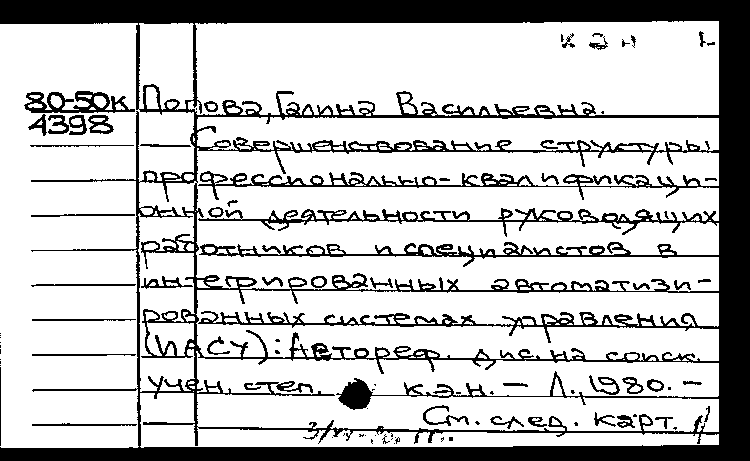 кэн
80-50к Попова, Галина Васильевна.
4398
Совершенствование структуры
профессионально-квалификаци-
онной деятельности руководящих
работников и специалистов в
интегрированных автоматизи-
рованных системах управления
(ИАСУ): Автореф. дис. на соиск.
учен. степ. к.э.н. — Л., 1980. —
См. след. карт.